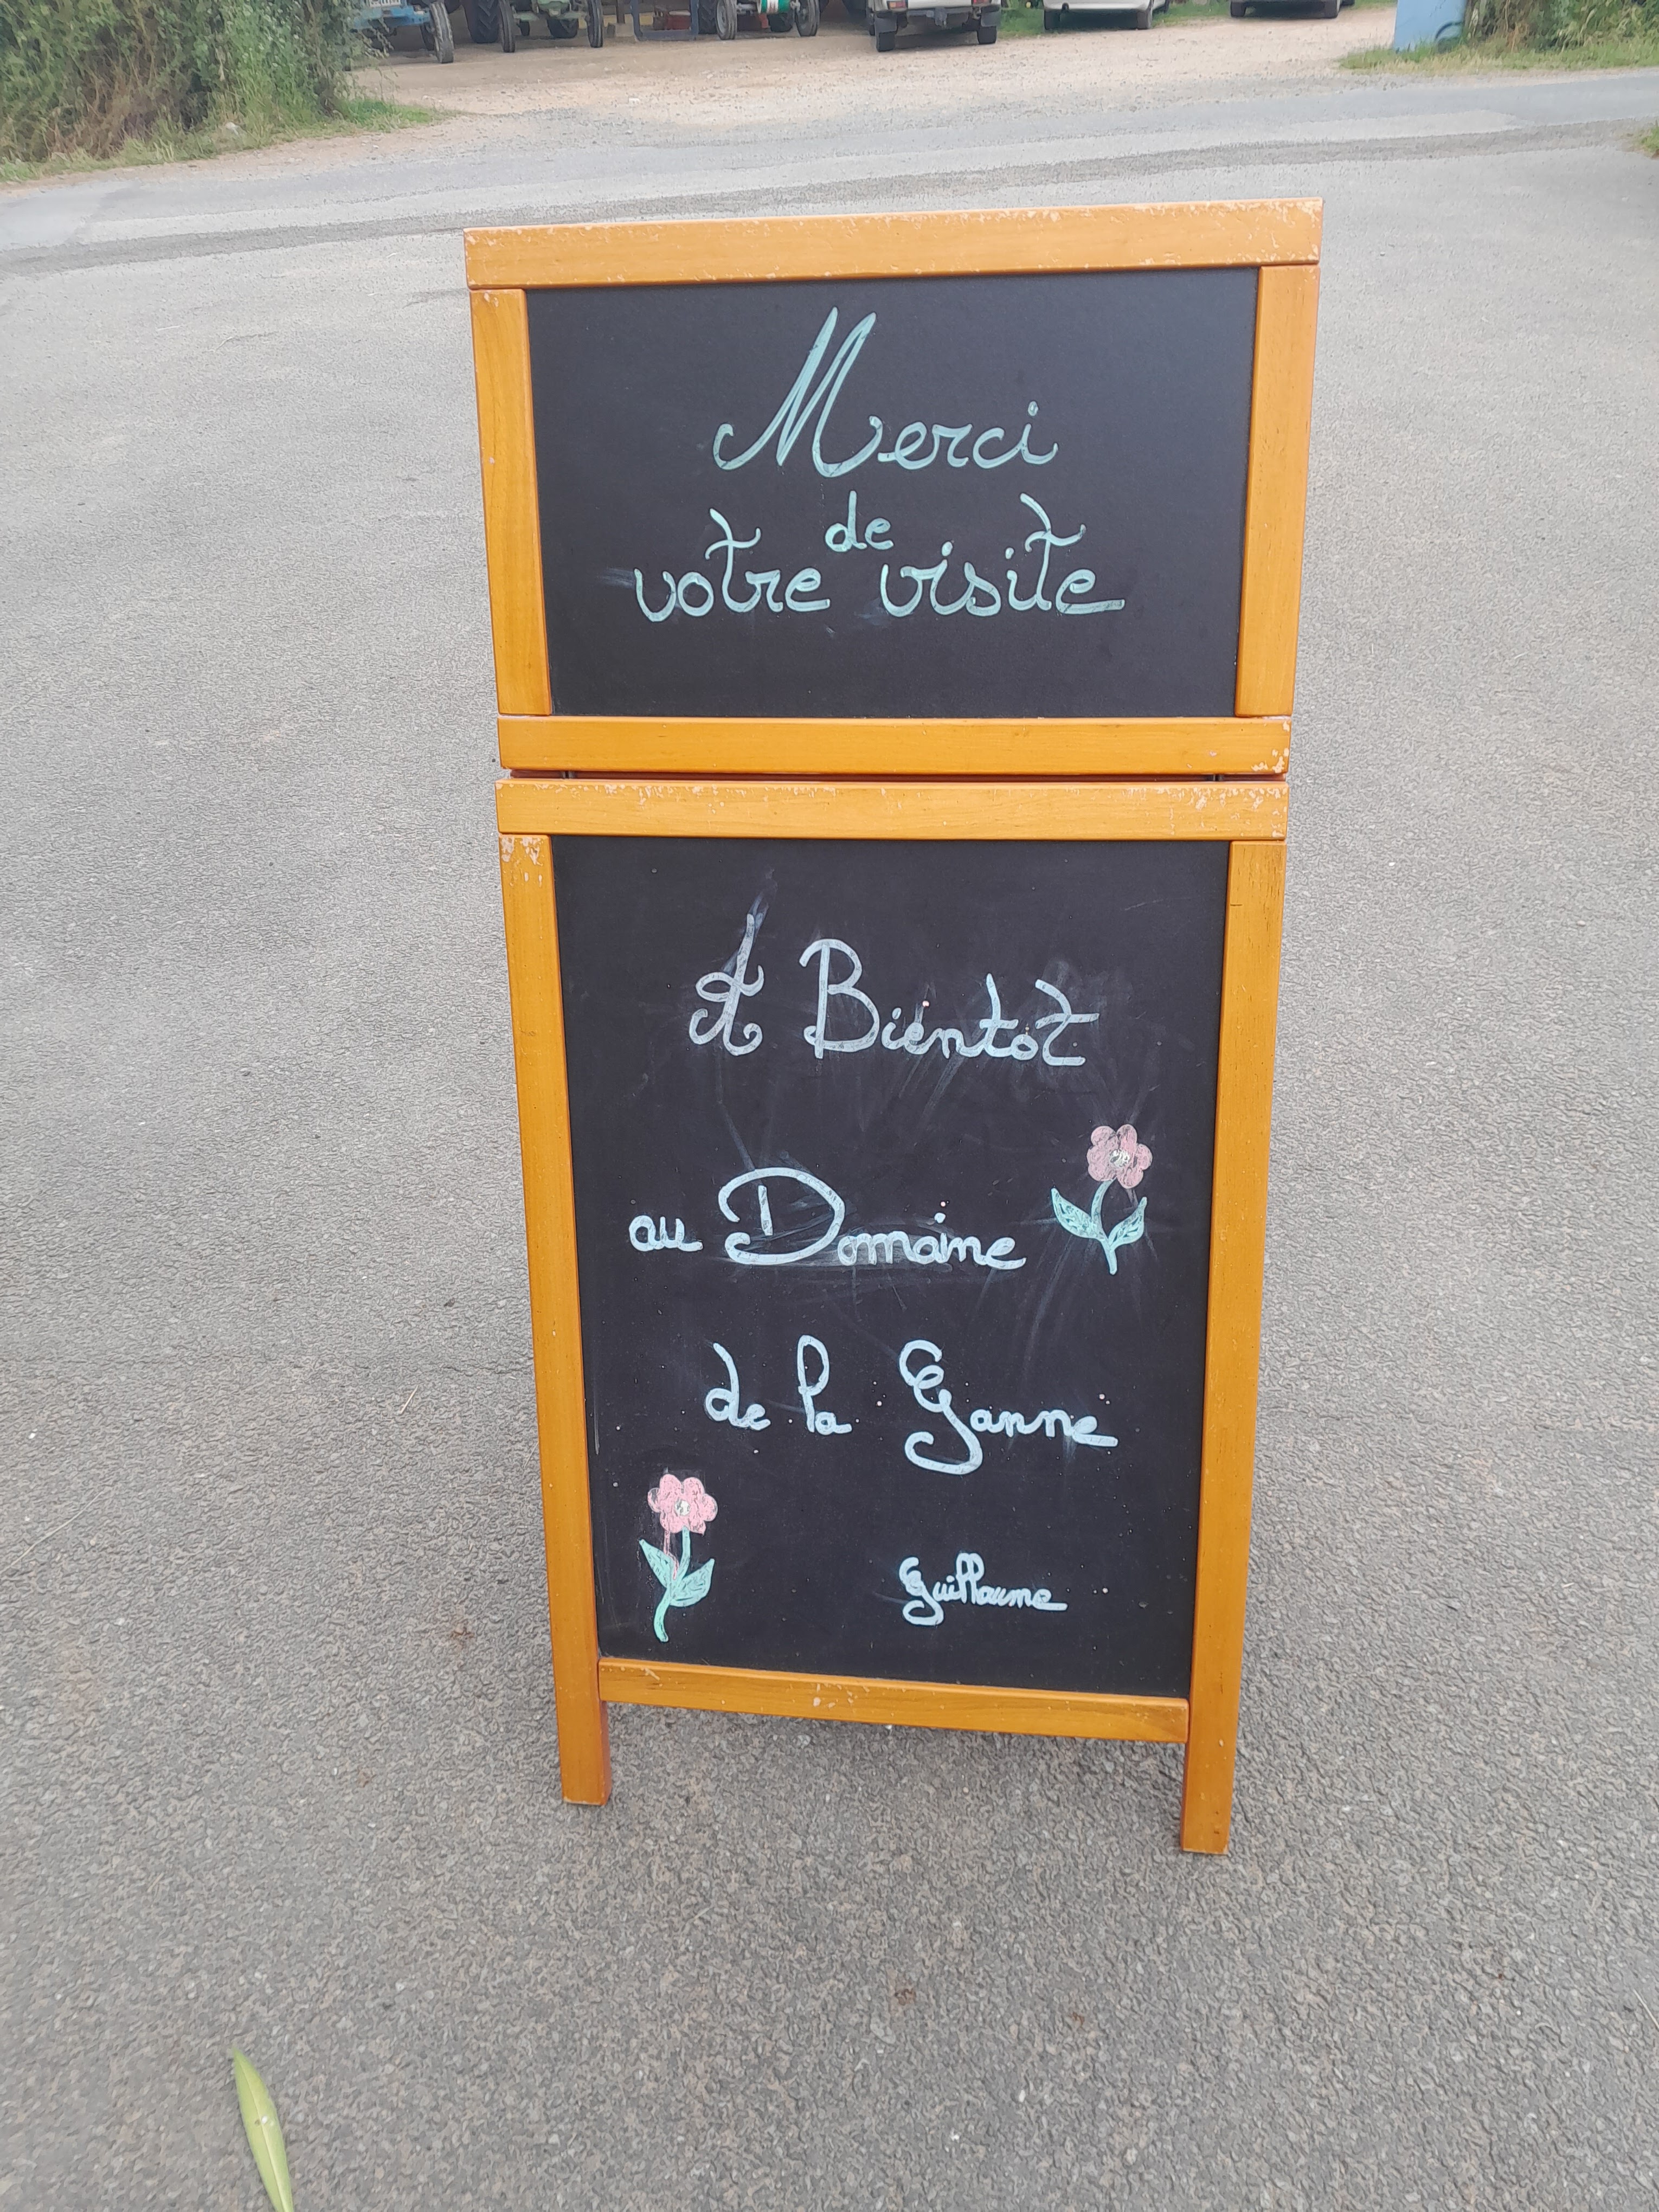 Merci
de
votre visite
A Bientot
au Domaine
de la Ganne
Guillaume